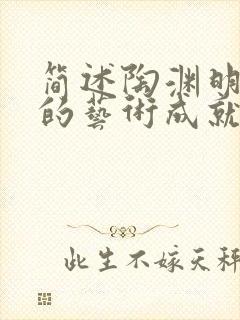 简述陶渊明
的藝術成就
此生不嫁天秤